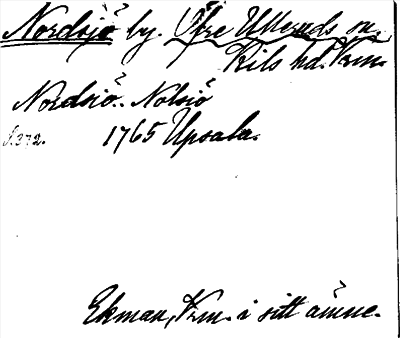 Nordsjö by. Öfre Ulleruds sn.
Kils hd. Vrm.
Nordsiö. Nolsiö
S. 372. 1765 Upsala.
Ekman, Vrm. i sitt ämne.